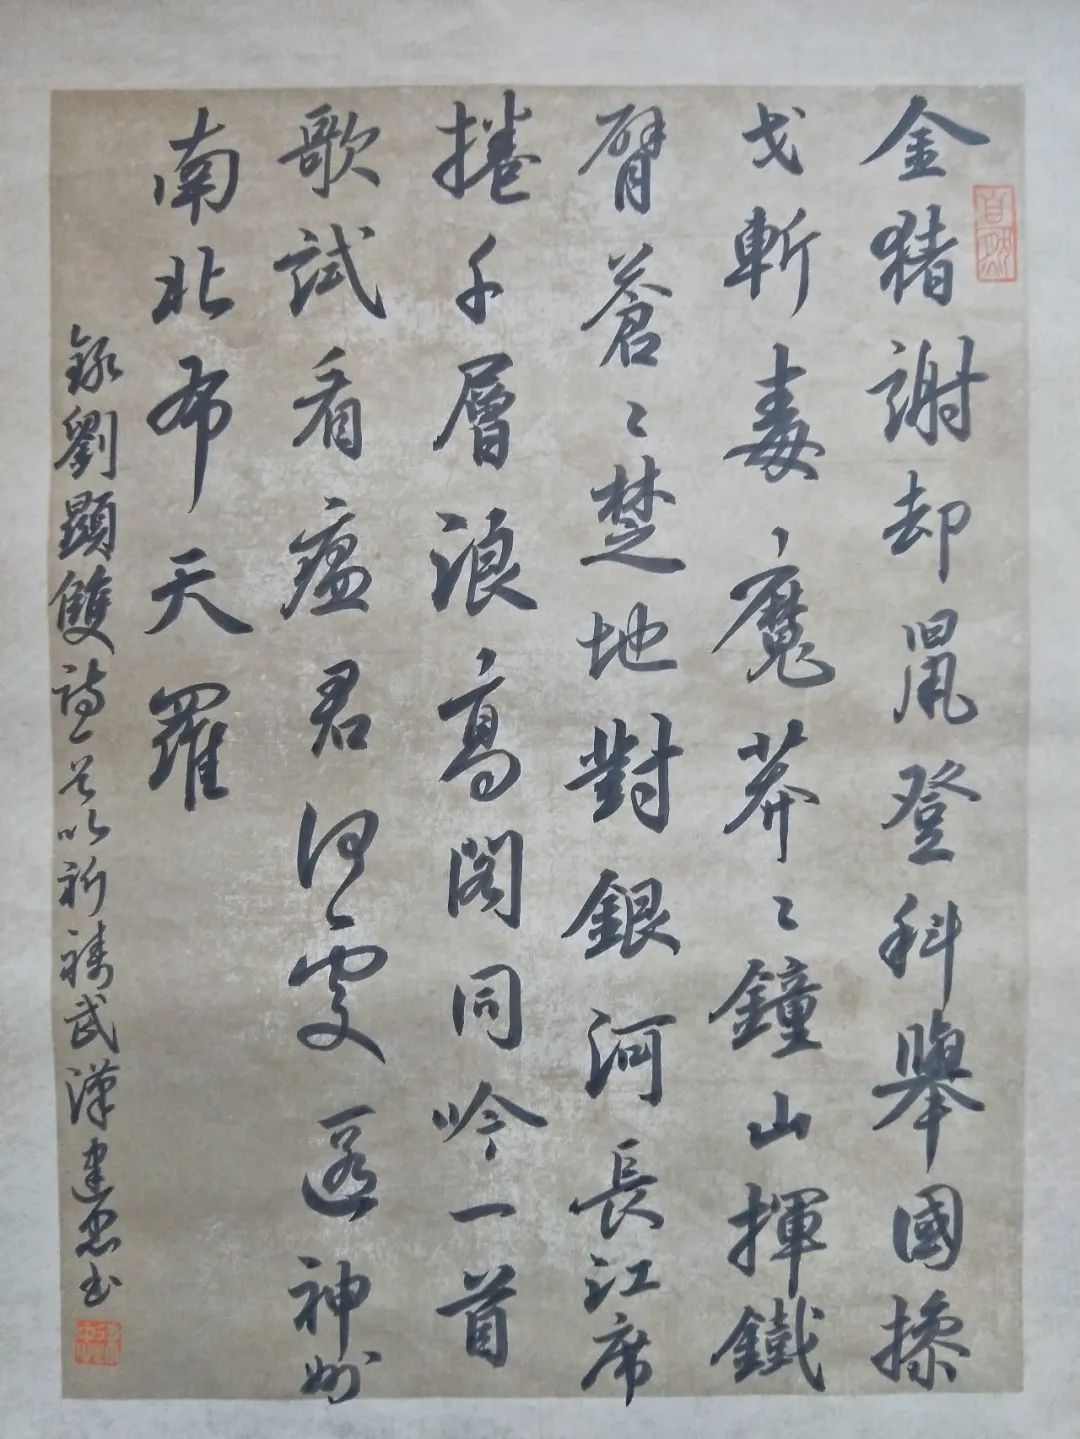 金猪謝却鼠登科舉國操
戈斬毒魔莽〻鐘山揮鐵
臂蒼〻楚地對銀河長江席
捲千層浪高閣同吟一首
歌試看瘟君何處逃神州
南北布天羅
錄劉顯雙詩一首以祈禱武漢建忠书